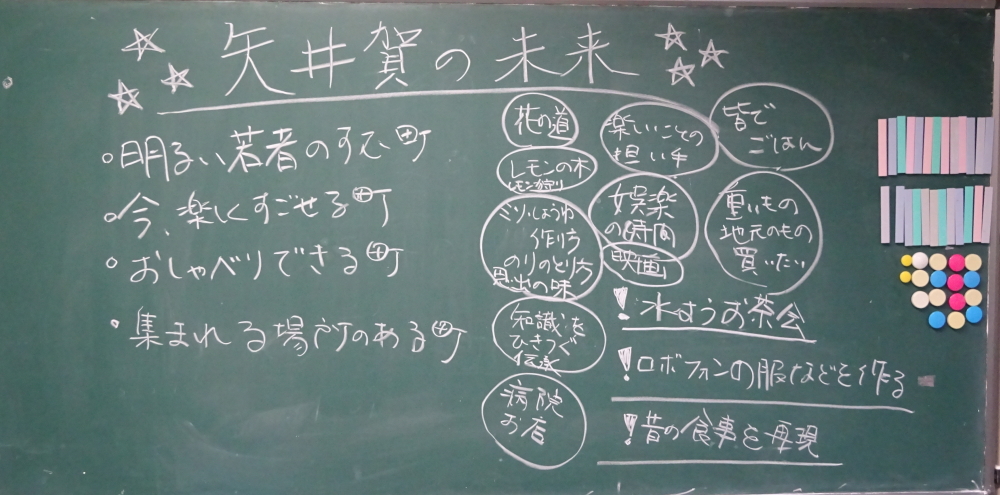 矢井賀の未来
明るい若者のすむ町
今、楽しくすごせる町
おしゃべりできる町
集まれる場所のある町
花の道
レモンの木
レモン狩り
ミソ、しょうゆ
作り方
のりのとり方
思い出の味
知識を
ひきつぐ
伝承
病院
お店
楽しいことの
担い手
娯楽
の時間
映画
皆で
ごはん
重いもの
地元のもの
買いたい
!水ようお茶会
!ロボフォンの服などを作る
!昔の食事を再現